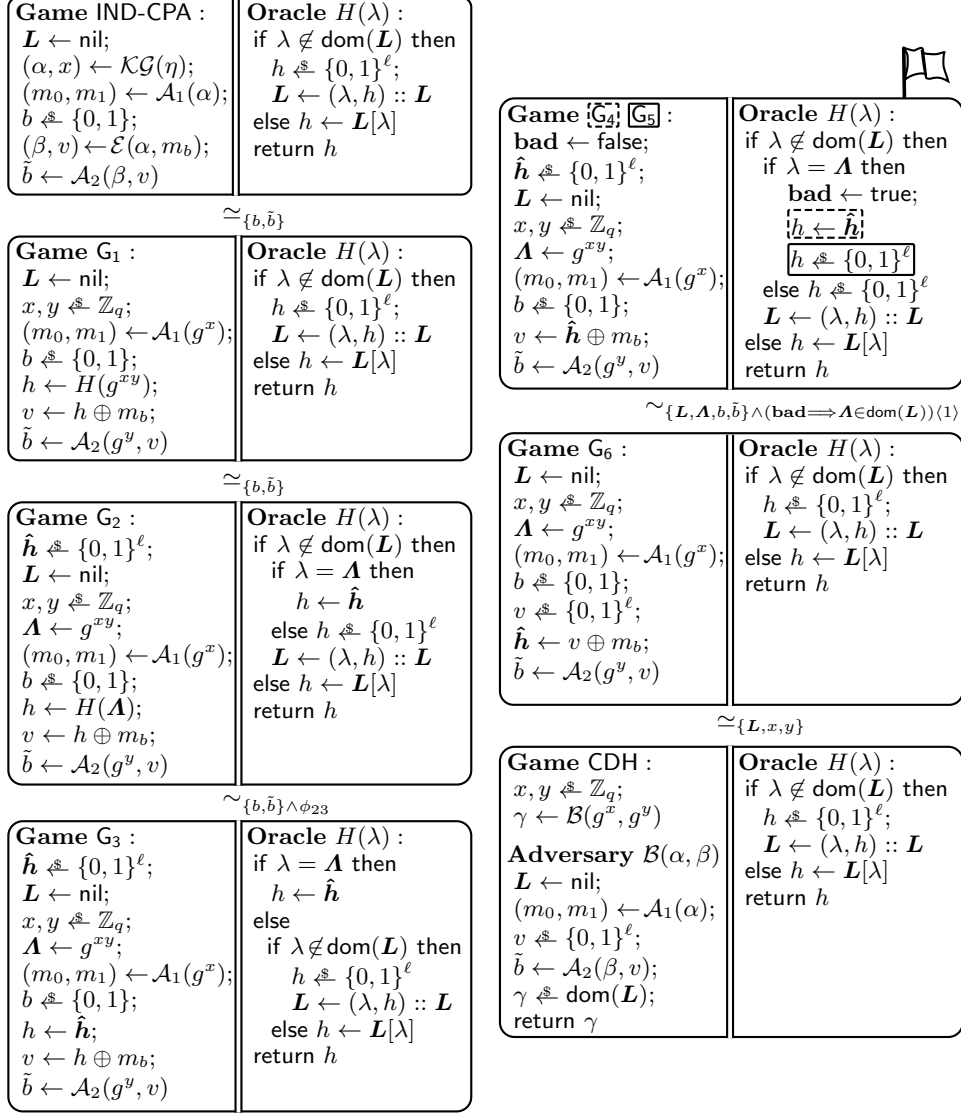 Game IND-CPA :
L ← nil;
(α, x) ← KG(η);
(m₀, m₁) ← A₁(α);
b ←$ {0, 1};
(β, v) ← E(α, m_b);
b̃ ← A₂(β, v)
Oracle H(λ) :
if λ ∉ dom(L) then
h ←$ {0, 1}^ℓ;
L ← (λ, h) :: L
else h ← L[λ]
return h
≃_{b,b̃}
Game G₁ :
L ← nil;
x, y ←$ ℤ_q;
(m₀, m₁) ← A₁(g^x);
b ←$ {0, 1};
h ← H(g^{xy});
v ← h ⊕ m_b;
b̃ ← A₂(g^y, v)
Oracle H(λ) :
if λ ∉ dom(L) then
h ←$ {0, 1}^ℓ;
L ← (λ, h) :: L
else h ← L[λ]
return h
≃_{b,b̃}
Game G₂ :
ĥ ←$ {0, 1}^ℓ;
L ← nil;
x, y ←$ ℤ_q;
Λ ← g^{xy};
(m₀, m₁) ← A₁(g^x);
b ←$ {0, 1};
h ← H(Λ);
v ← h ⊕ m_b;
b̃ ← A₂(g^y, v)
Oracle H(λ) :
if λ ∉ dom(L) then
if λ = Λ then
h ← ĥ
else h ←$ {0, 1}^ℓ
L ← (λ, h) :: L
else h ← L[λ]
return h
∼_{b,b̃}∧φ₂₃
Game G₃ :
ĥ ←$ {0, 1}^ℓ;
L ← nil;
x, y ←$ ℤ_q;
Λ ← g^{xy};
(m₀, m₁) ← A₁(g^x);
b ←$ {0, 1};
h ← ĥ;
v ← h ⊕ m_b;
b̃ ← A₂(g^y, v)
Oracle H(λ) :
if λ = Λ then
h ← ĥ
else
if λ ∉ dom(L) then
h ←$ {0, 1}^ℓ
L ← (λ, h) :: L
else h ← L[λ]
return h
Game G₄ G₅ :
bad ← false;
ĥ ←$ {0, 1}^ℓ;
L ← nil;
x, y ←$ ℤ_q;
Λ ← g^{xy};
(m₀, m₁) ← A₁(g^x);
b ←$ {0, 1};
v ← ĥ ⊕ m_b;
b̃ ← A₂(g^y, v)
Oracle H(λ) :
if λ ∉ dom(L) then
if λ = Λ then
bad ← true;
h ← ĥ
h ←$ {0, 1}^ℓ
else h ←$ {0, 1}^ℓ
L ← (λ, h) :: L
else h ← L[λ]
return h
∼_{L,Λ,b,b̃}∧(bad⟹Λ∈dom(L))⟨1⟩
Game G₆ :
L ← nil;
x, y ←$ ℤ_q;
Λ ← g^{xy};
(m₀, m₁) ← A₁(g^x);
b ←$ {0, 1};
v ←$ {0, 1}^ℓ;
ĥ ← v ⊕ m_b;
b̃ ← A₂(g^y, v)
Oracle H(λ) :
if λ ∉ dom(L) then
h ←$ {0, 1}^ℓ;
L ← (λ, h) :: L
else h ← L[λ]
return h
≃_{L,x,y}
Game CDH :
x, y ←$ ℤ_q;
γ ← B(g^x, g^y)
Adversary B(α, β)
L ← nil;
(m₀, m₁) ← A₁(α);
v ←$ {0, 1}^ℓ;
b̃ ← A₂(β, v);
γ ←$ dom(L);
return γ
Oracle H(λ) :
if λ ∉ dom(L) then
h ←$ {0, 1}^ℓ;
L ← (λ, h) :: L
else h ← L[λ]
return h